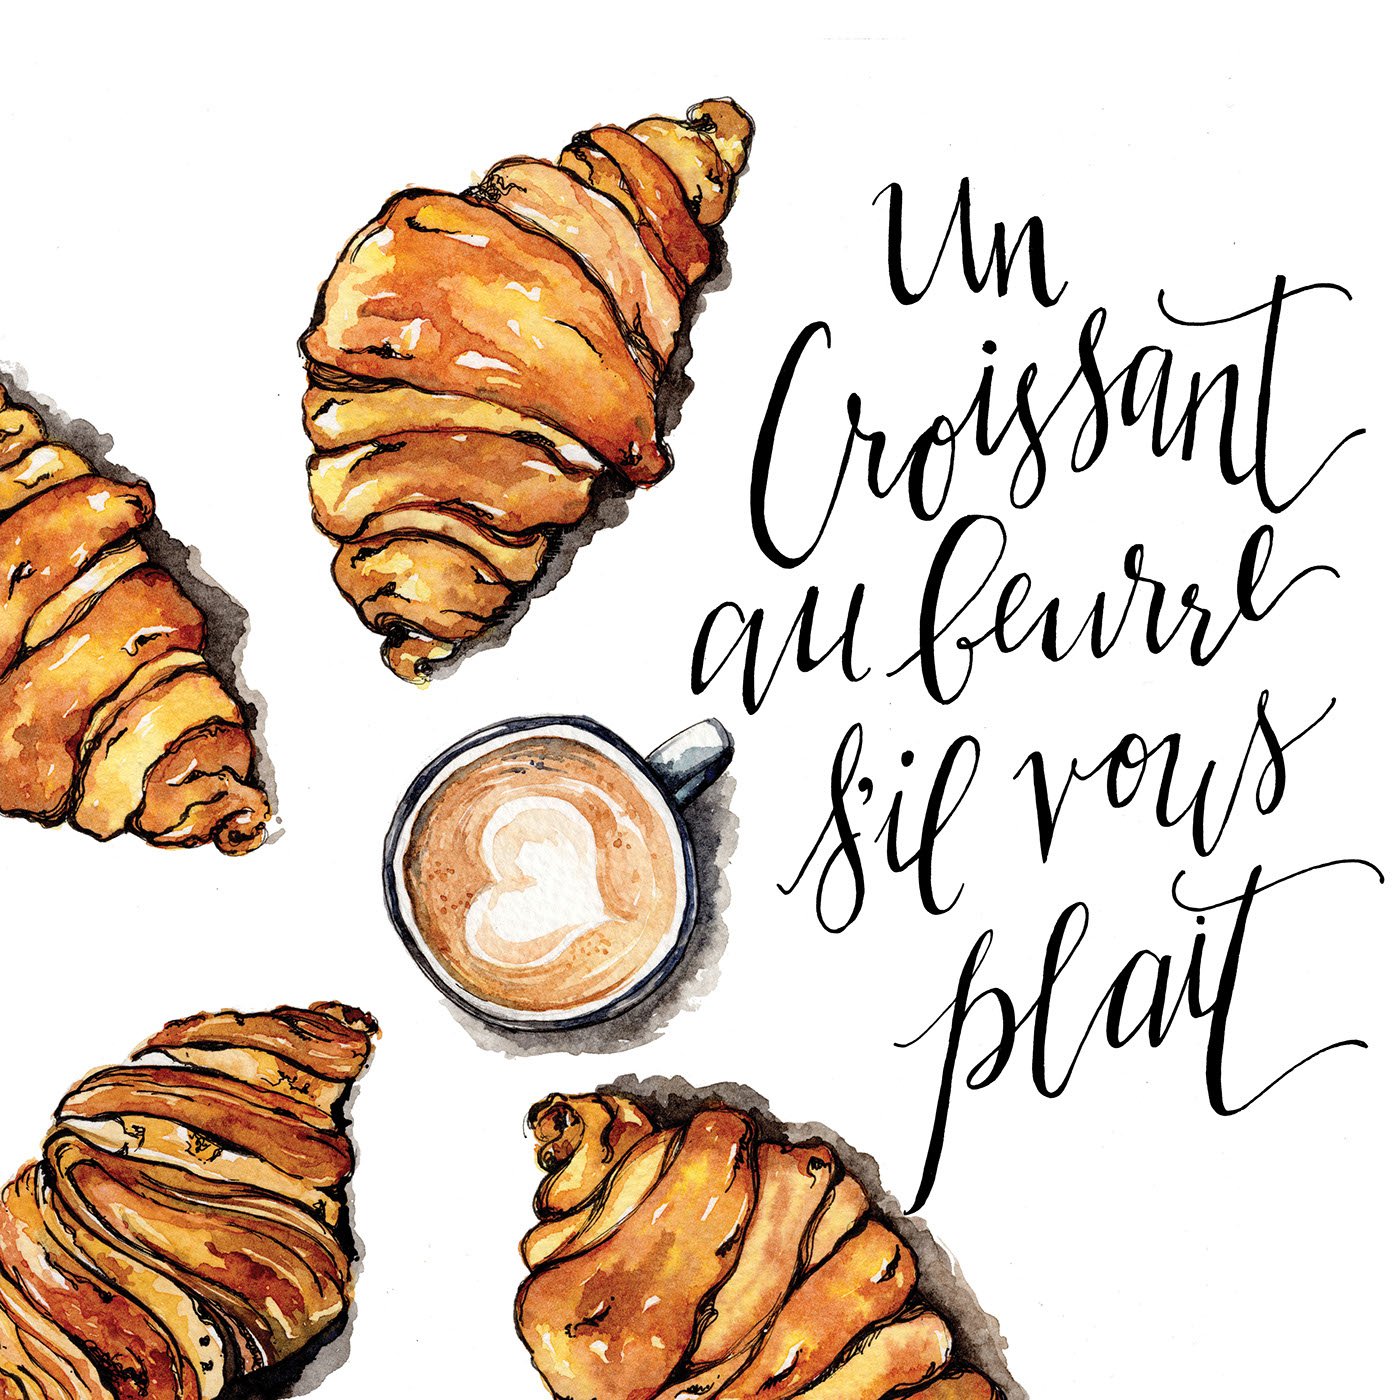 Un
Croissant
au beurre
s'il vous
plait